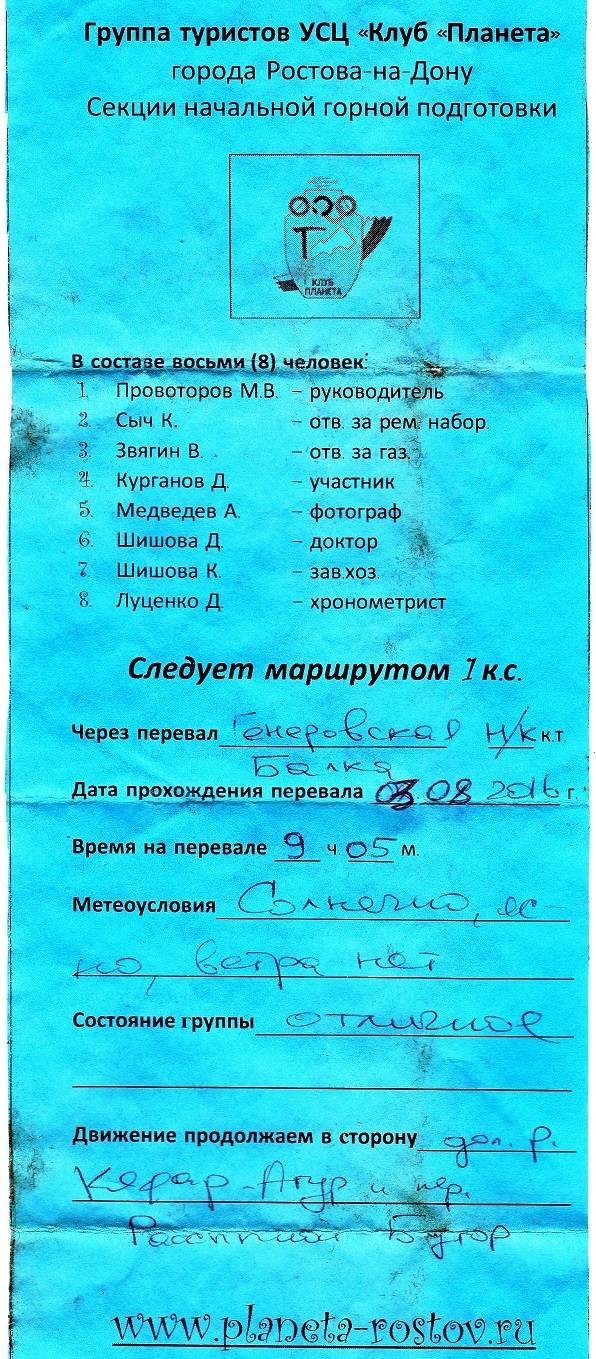 Группа туристов УСЦ «Клуб «Планета»
города Ростова-на-Дону
Секции начальной горной подготовки
Т
КЛУБ
ПЛАНЕТА
В составе восьми (8) человек:
1. Провоторов М.В. – руководитель
2. Сыч К. – отв. за рем. набор.
3. Звягин В. – отв. за газ.
4. Курганов Д. – участник
5. Медведев А. – фотограф
6. Шишова Д. – доктор
7. Шишова К. – зав.хоз.
8. Луценко Д. – хронометрист
Следует маршрутом 1 к.с.
Через перевал Генеровская н/к к.т.
Балка
Дата прохождения перевала 08 2016 г.
Время на перевале 9 ч. 05 м.
Метеоусловия Солнечно, яс-
но, ветра нет
Состояние группы отличное
Движение продолжаем в сторону дол. р.
Кяфар-Агур и пер.
Рассыпной Бугор
www.planeta-rostov.ru